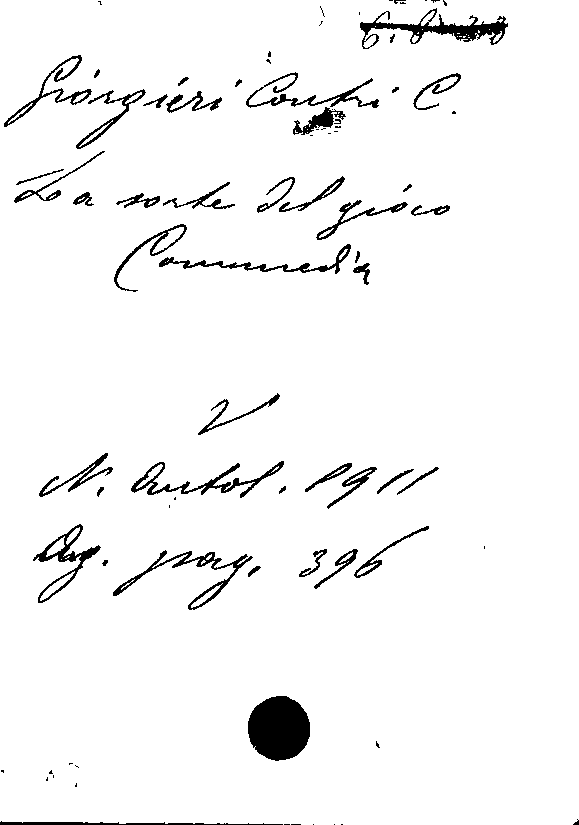 Giorgieri Contri C.
La sorte del gioco
Commedia
V
N. Antol. 1911
Ag. pag. 396